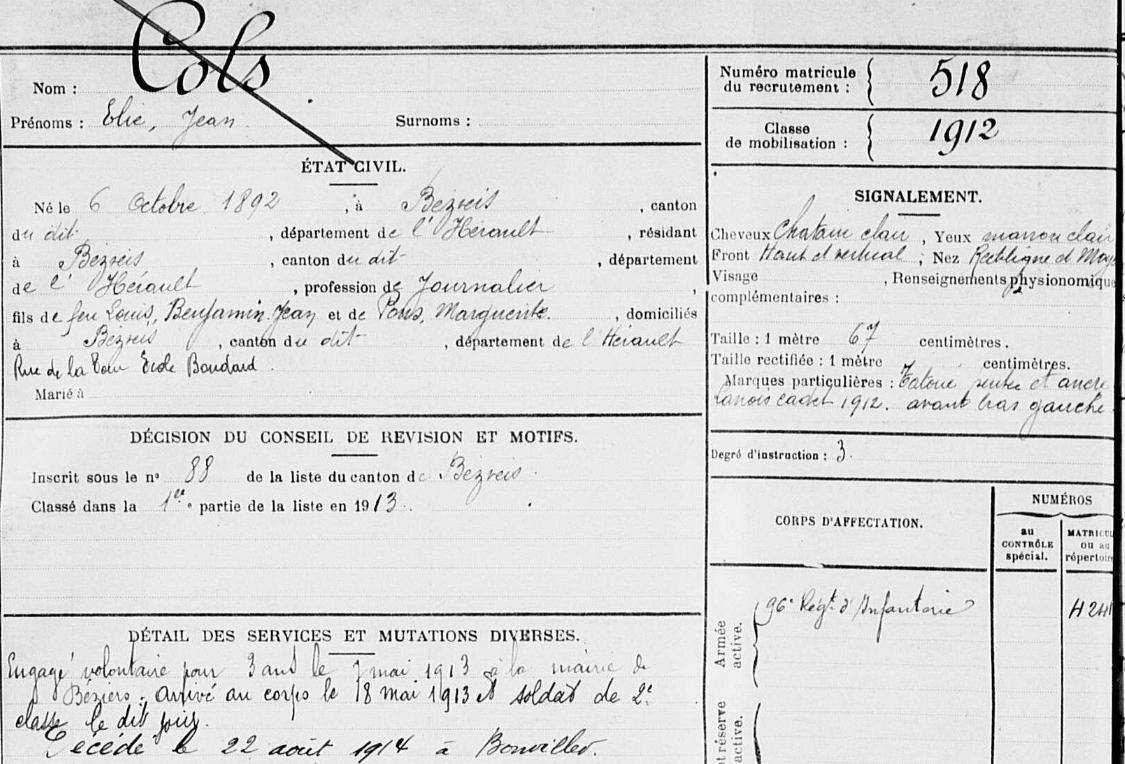 Nom : Cols
Prénoms : Elie, Jean Surnoms :
ÉTAT CIVIL.
Né le 6 Octobre 1892, à Béziers, canton
du dit, département de l'Hérault, résidant
à Béziers, canton du dit, département
de l'Hérault, profession de Journalier,
fils de feu Louis, Benjamin Jean et de Pons, Marguerite, domiciliés
à Béziers, canton du dit, département de l'Hérault
Rue de la Ecole Boudard
Marié à
DÉCISION DU CONSEIL DE REVISION ET MOTIFS.
Inscrit sous le n° 88 de la liste du canton de Béziers.
Classé dans la 1ere partie de la liste en 1913.
DÉTAIL DES SERVICES ET MUTATIONS DIVERSES.
Engagé volontaire pour 3 ans le 7 mai 1913 à la mairie de
Béziers. arrivé au corps le 18 mai 1913 et soldat de 2e
classe le dit jour.
Décédé le 22 août 1914 à Bonviller.
Numéro matricule
du recrutement : 518
Classe
de mobilisation : 1912
SIGNALEMENT.
Cheveux Chatain clair, Yeux marron clair
Front Haut et vertical, Nez Rectiligne et Moy
Visage , Renseignements physionomique
complémentaires :
Taille : 1 mètre 67 centimètres.
Taille rectifiée : 1 mètre centimètres.
Marques particulières : Tatoué et ancre
cadet 1912. avant bras gauche
Degré d'instruction : 3.
CORPS D'AFFECTATION.
NUMÉROS
au
CONTRÔLE
spécial.
MATRICU
ou au
répertoire
Armée
active.
96e Régt d'Infanterie
et réserve
active.